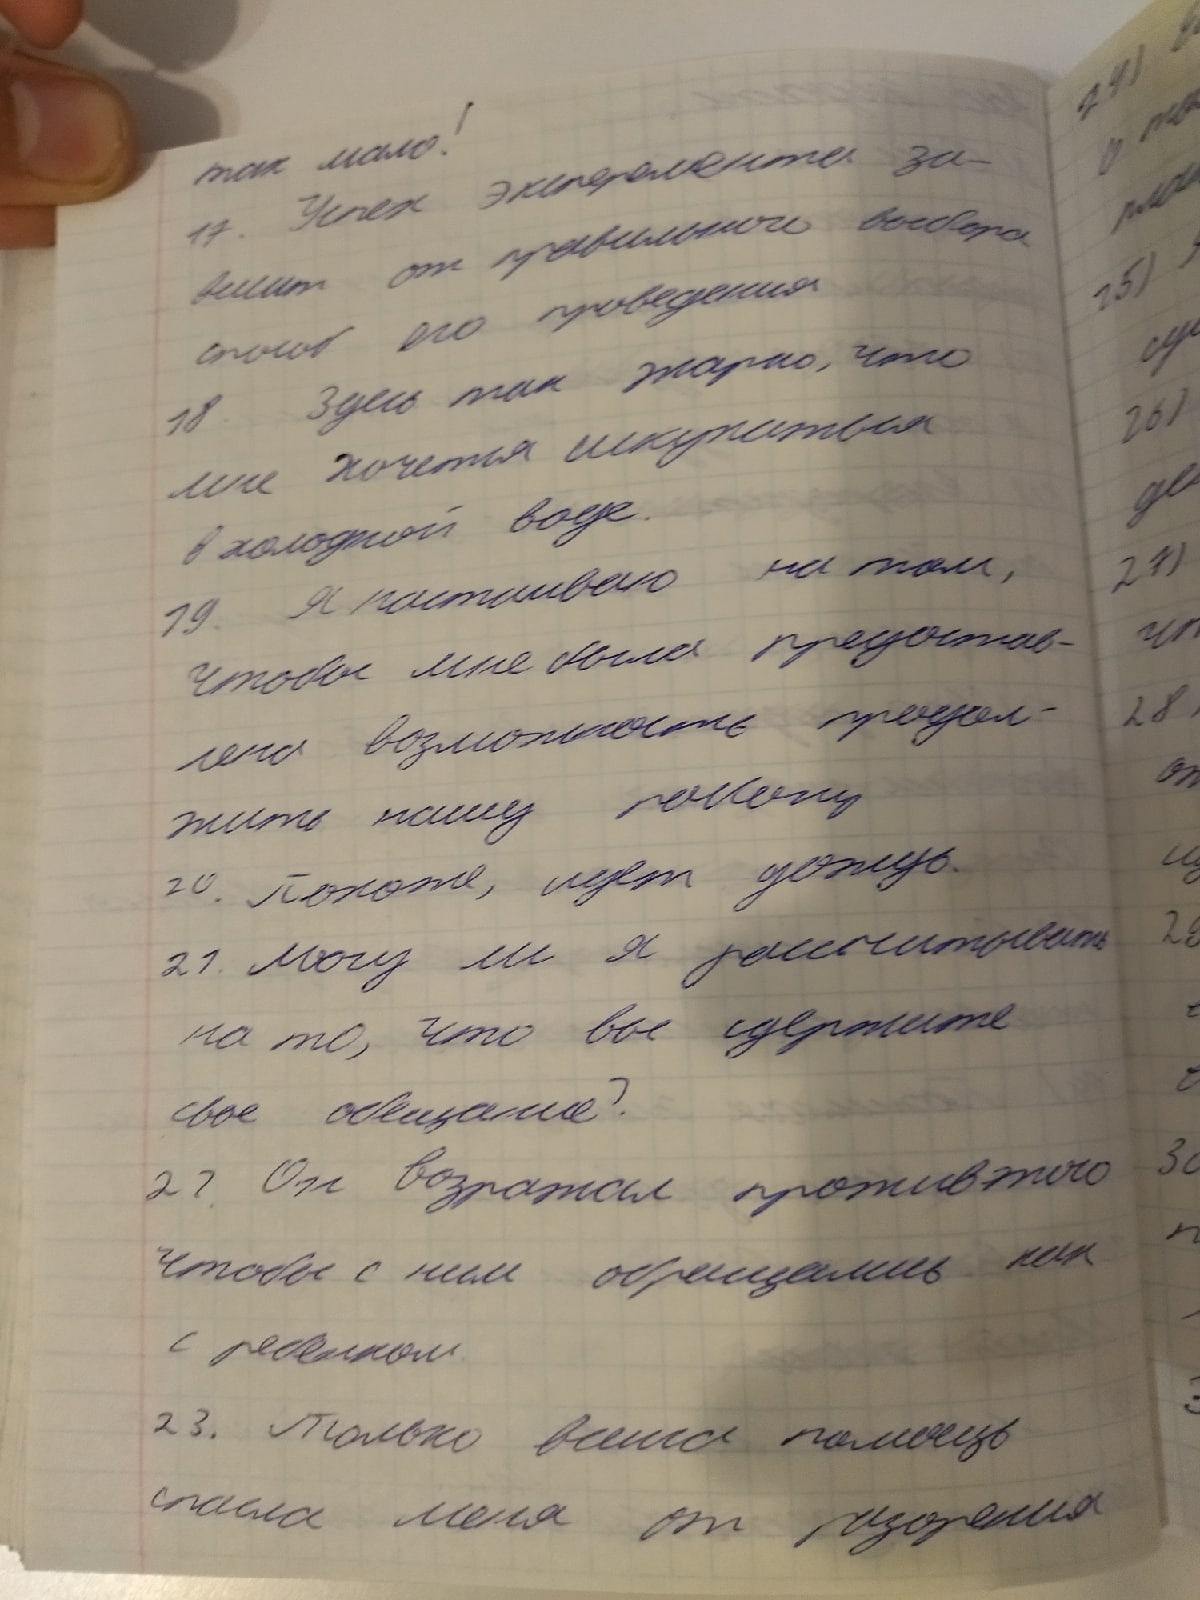 так мало!
17. Успех эксперемента за-
висит от правильного выбора
способ его проведения
18 Здесь так жарко, что
мне хочется искупаться
в холодной воде.
19. Я настаиваю на том,
чтобы мне была предостав-
лена возможность продол-
жить нашу работу
20. Похоже, идет дождь.
21. Могу ли я рассчитывать
на то, что вы сдержите
свое обещание?
22. Он возражал против этого
чтобы с ним обращались как
с ребенком.
23. Только ваша помощь
спасла меня от разорения
24)
25)
26)
27)
28)